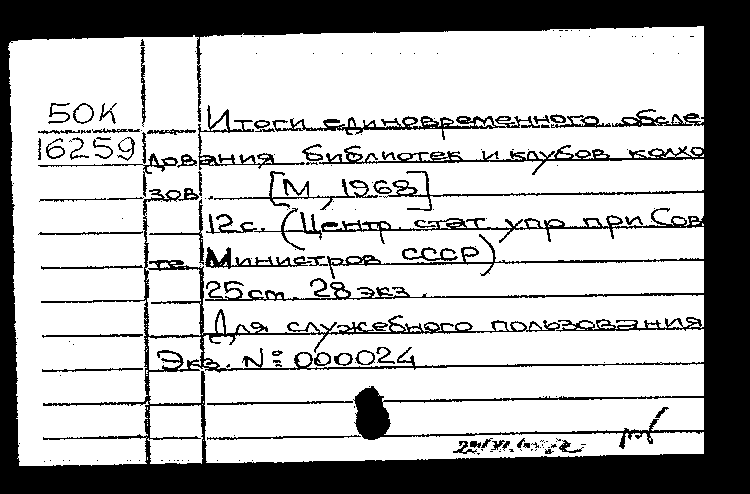 50К
Итоги единовременного обсле
16259
дования библиотек и клубов колхо
зов. [М, 1968]
12с. (Центр. стат упр при Сов
те Министров СССР)
25см. 28 экз.
Для служебного пользования
Экз. № 000024